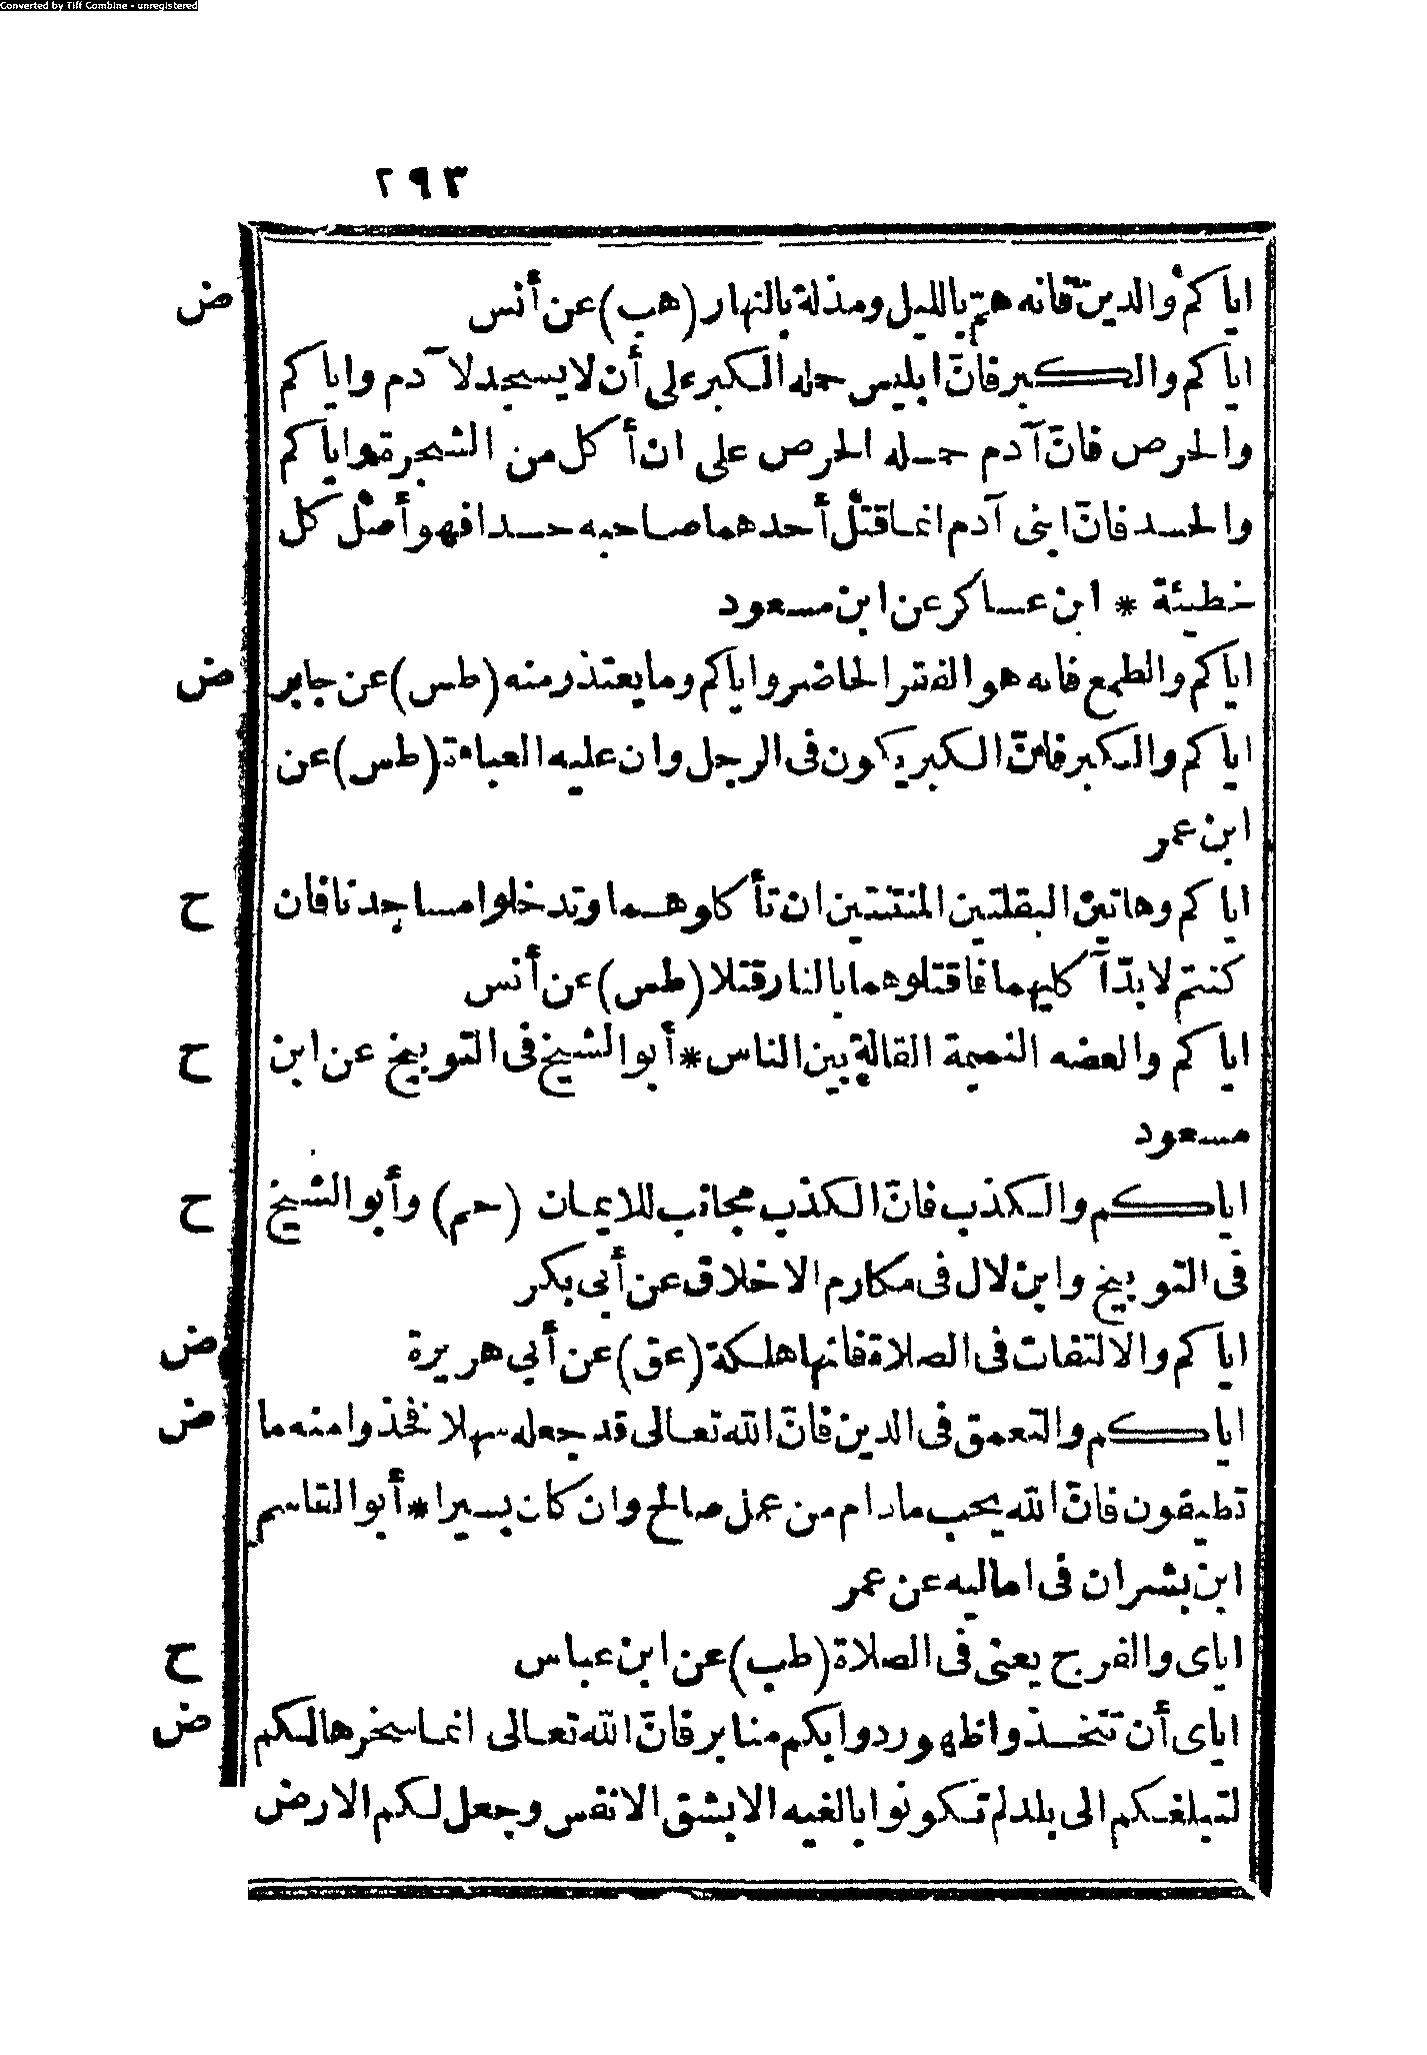 Converted by Tiff Combine - unregistered
٢٩٣
اياكم والدين فانه همّ بالليل ومذلة بالنهار (هب) عن أنس ض
اياكم والكبر فانّ ابليس حمله الكبر على أن لا يسجد لآدم واياكم
والحرص فانّ آدم حمله الحرص على ان أكل من الشجرة واياكم
والحسد فانّ ابنى آدم انما قتل أحدهما صاحبه حسدا فهو أصل كل
خطيئة * ابن عساكر عن ابن مسعود
اياكم والطمع فانه هو الفقر الحاضر واياكم وما يعتذر منه (طس) عن جابر ض
اياكم والكبر فانّ الكبر يكون فى الرجل وان عليه العباءة (طس) عن
ابن عمر
اياكم وهاتين البقلتين المنتنتين ان تأكلوهما وتدخلوا مساجدنا فان ح
كنتم لا بدّ آكليهما فاقتلوهما بالنار قتلا (طس) عن أنس
اياكم والعضه النميمة القالة بين الناس * أبو الشيخ فى التوبيخ عن ابن ح
مسعود
اياكم والكذب فانّ الكذب مجانب للايمان (حم) وأبو الشيخ ح
فى التوبيخ وابن لال فى مكارم الاخلاق عن أبى بكر
اياكم والالتفات فى الصلاة فانها هلكة (عق) عن أبي هريرة ض
اياكم والتعمق فى الدين فانّ الله تعالى قد جعله سهلا فخذوا منه ما ض
تطيقون فانّ الله يحب ما دام من عمل صالح وان كان يسيرا * أبو القاسم
ابن بشران فى اماليه عن عمر
اياى والفرج يعنى فى الصلاة (طب) عن ابن عباس ح
اياى أن تتخذوا ظهور دوابكم منابر فانّ الله تعالى انما سخرها لكم ض
لتبلغكم الى بلد لم تكونوا بالغيه الا بشق الانفس وجعل لكم الارض